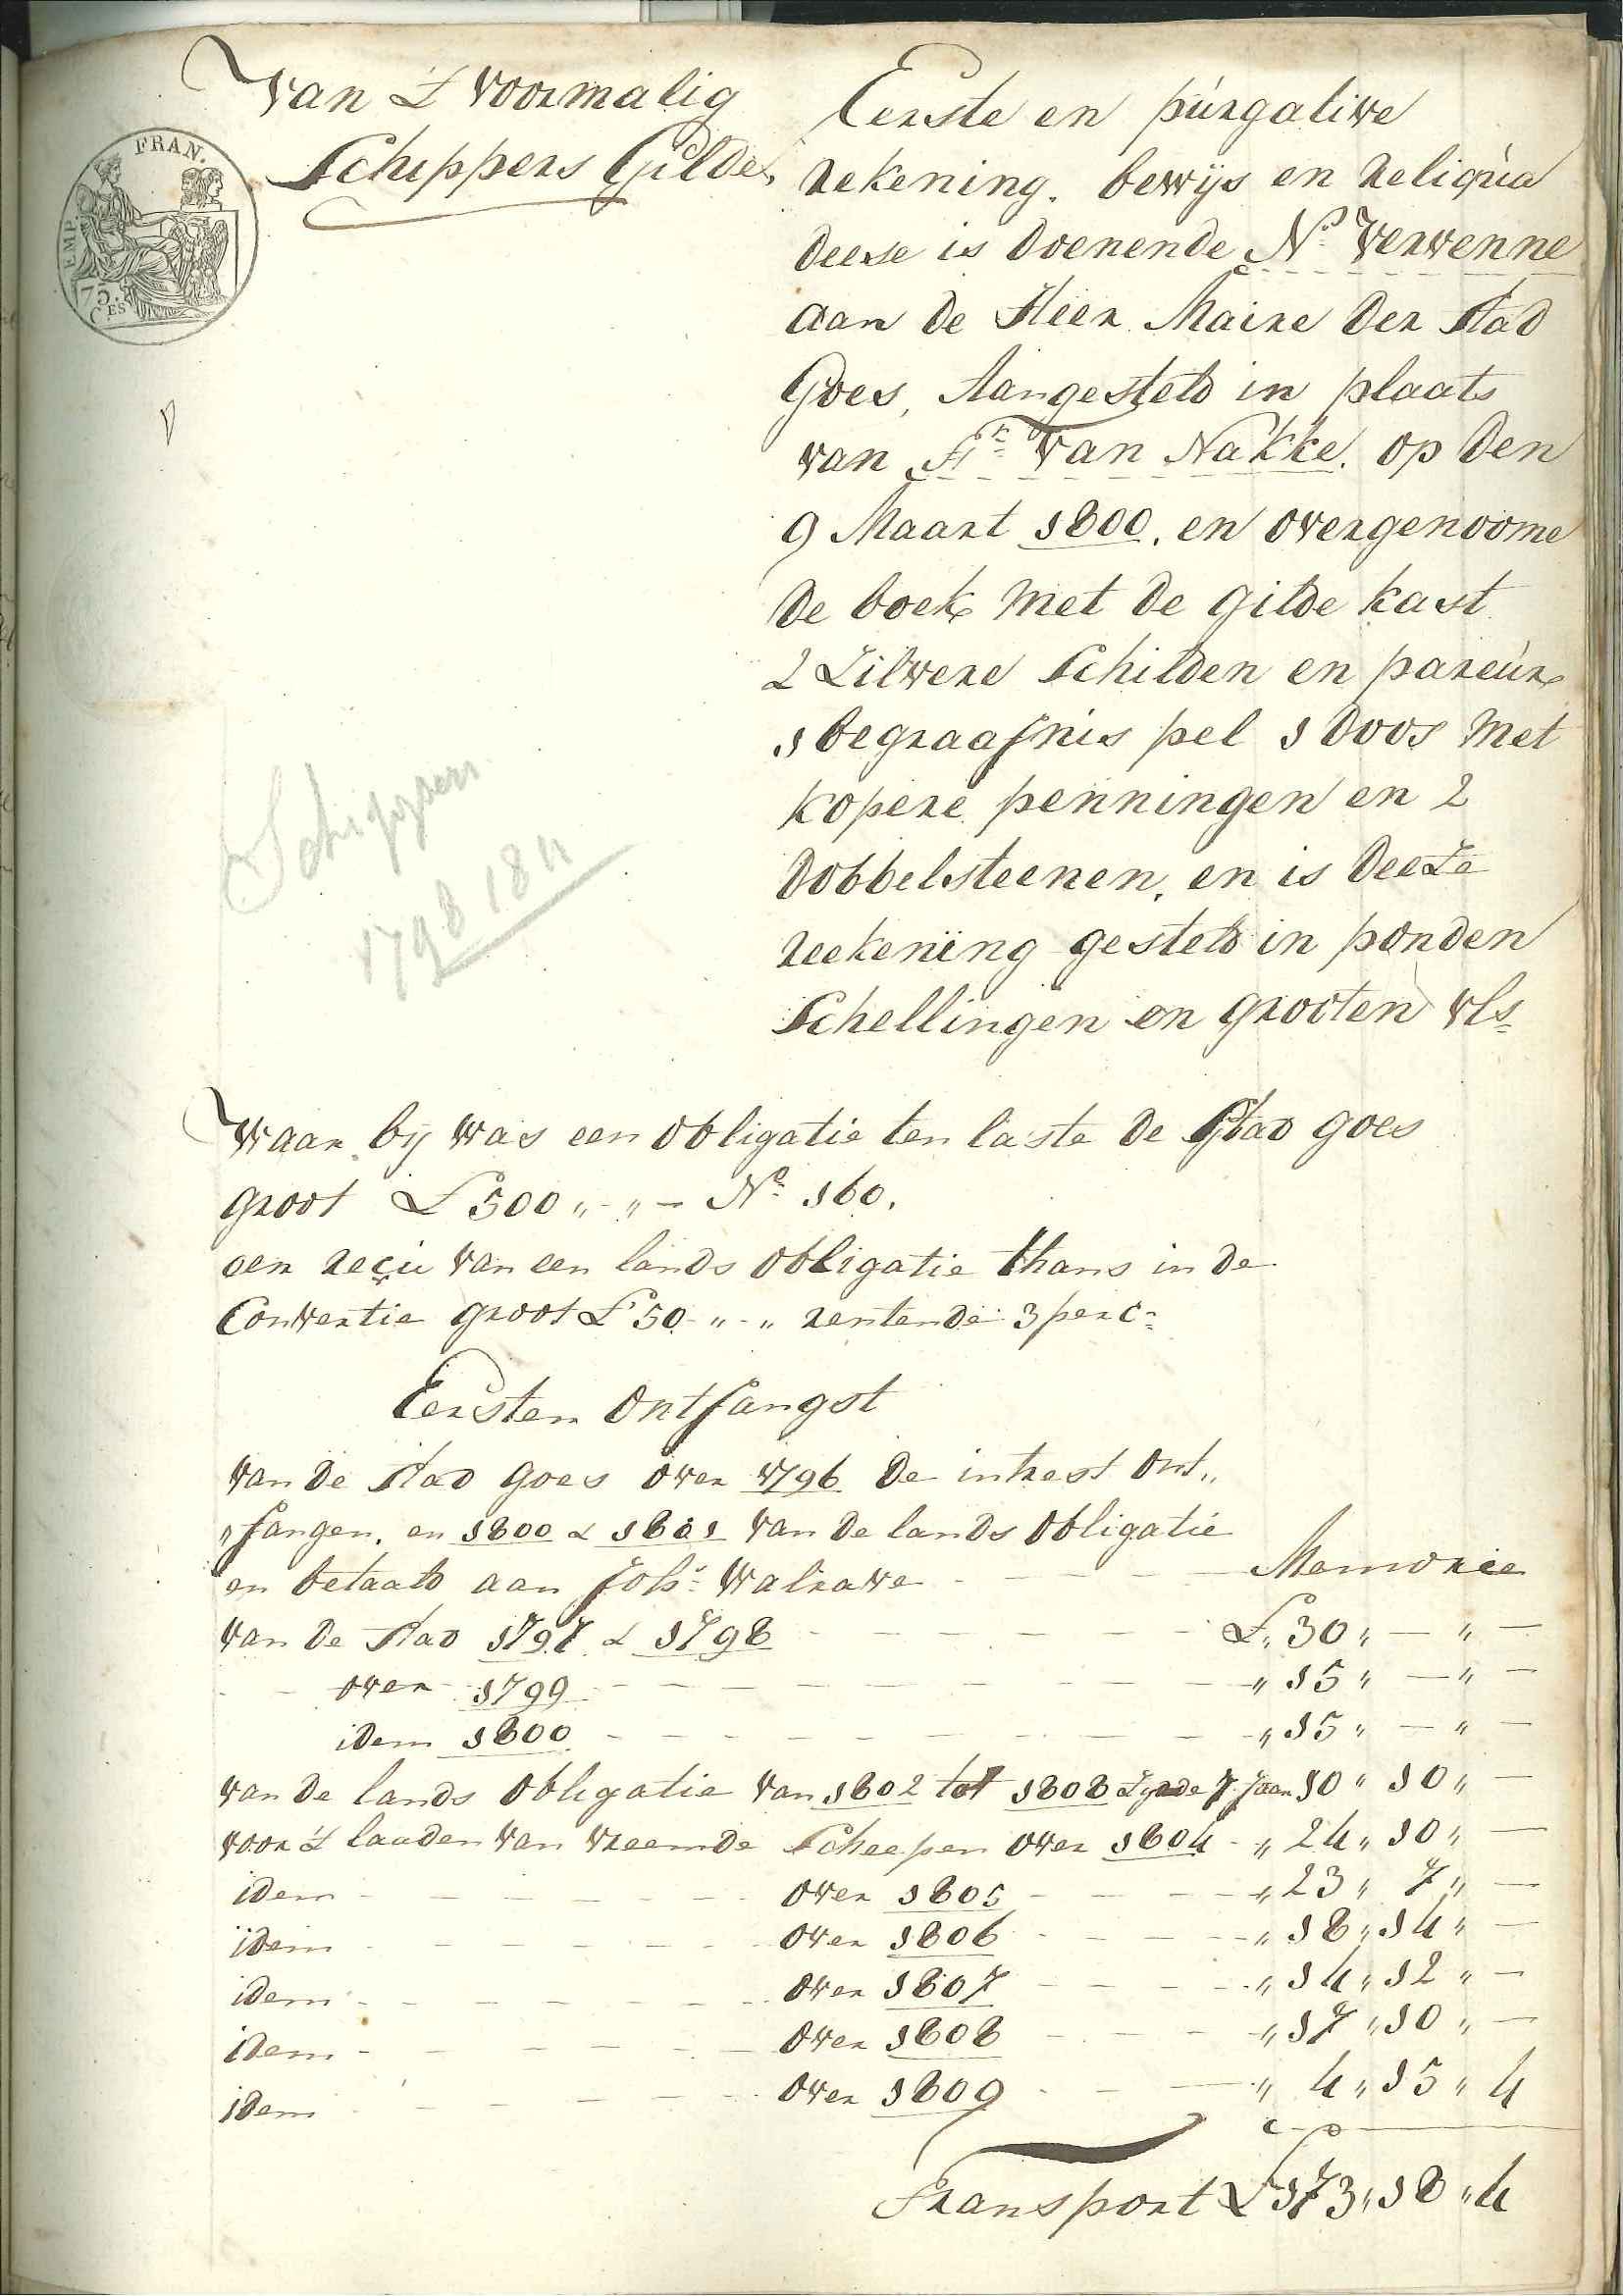 Van 't voormalig
Schippers Gilde,
FRAN.
EMP.
75.
C.ES
Eerste en púrgative
rekening. bewijs en reliqúa
deese is doenende N.o Verwenne
aan de Heer Maire der Stad
Goes, Aangesteld in plaats
van Fr. van Nakke. op den
9 Maart 1800. en overgenoome
de boek met de gilde kast
2 Zilvere Schilden en pareúr
1 begraafnis pel 1 doos met
kopere penningen en 2
dobbelsteenen, en is deeze
reekening gesteld in ponden
Schellingen en grooten vls
Schippers
1798 1811
Waar bij was een obligatie ten laste de Stad goes
groot £ 500 „ - „ - No 160.
een reçu van een lands obligatie thans in de
Convertie groot £ 50 - „ - „ rentende 3 per c:
Eersten ontfangst
van de Stad goes over 1796 de intrest ont„
„fangen. en 1800 & 1801 van de lands obligatie
en betaald aan Johs: Walrave - - - Memorie
van de Stad 1797 & 1798 - - - £ „ 30 „ — „ —
- - over 1799 - - - „ 15 „ — „ —
idem 1800 - - - „ 15 „ — „ —
van de lands obligatie van 1802 tot 1808 zynde 7 Jaar 10 „ 10 „ —
voor 't laaden van vreemde Scheepen over 1804 - „ 24 „ 10 „ —
idem - - - over 1805 - - - „ 23 „ 7 „ —
idem - - - over 1806 - - - „ 18 „ 14 „ —
idem - - - over 1807 - - - „ 14 „ 12 „ —
idem - - - over 1808 - - - „ 17 „ 10 „ —
idem - - - over 1809 - - - „ 4 „ 15 „ 4
Transport £ 173 „ 18 „ 4